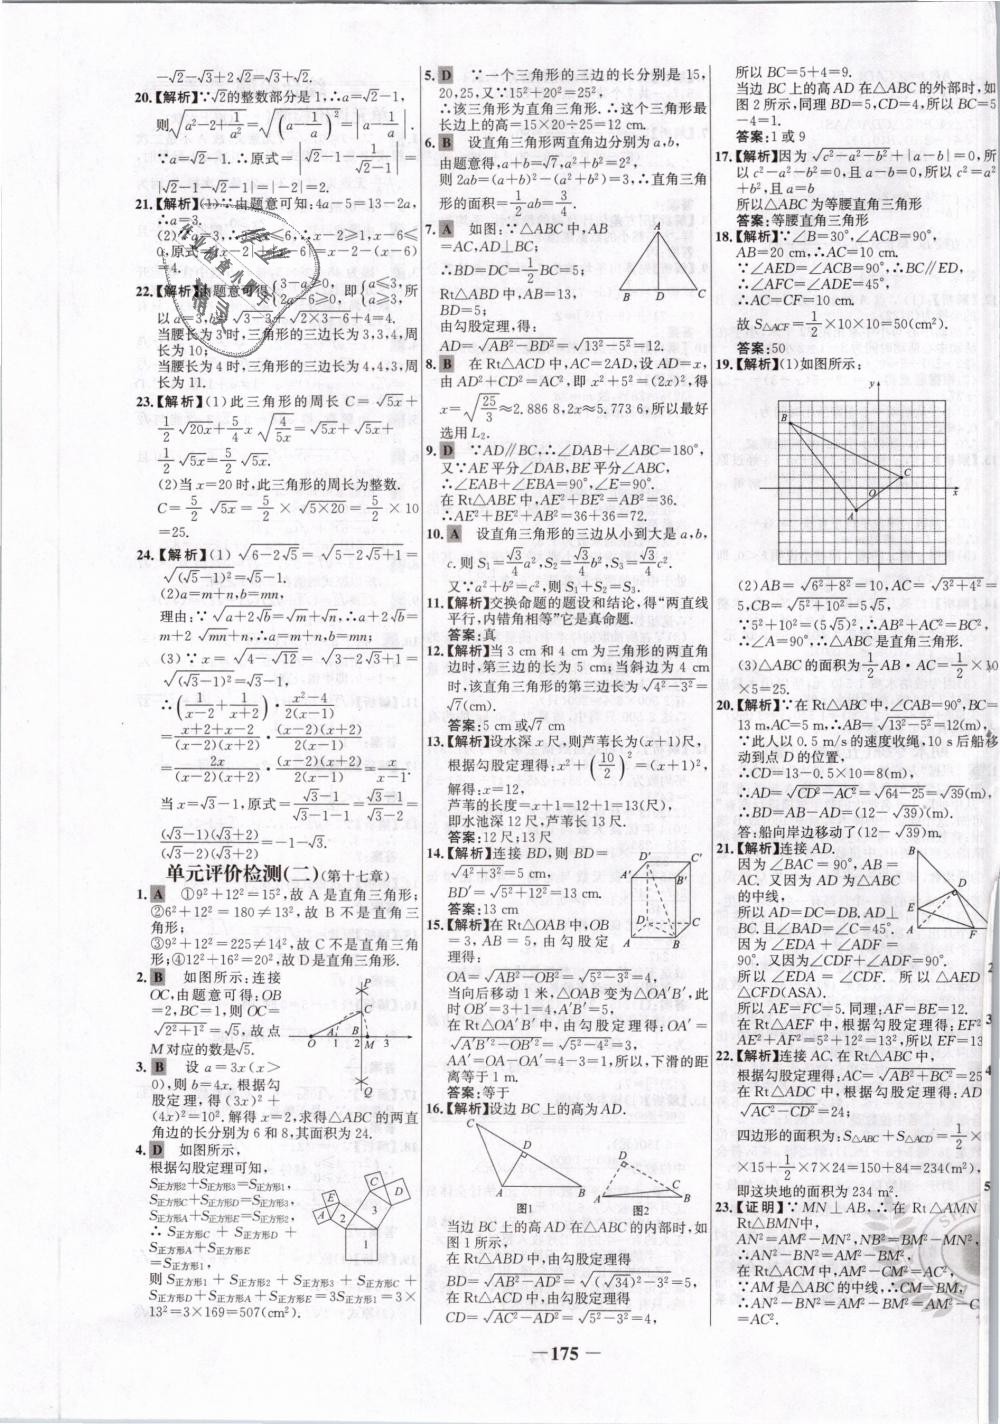 -√2-√3+2√2=√3+√2.
20.【解析】∵√2的整数部分是1,∴a=√2-1,
则√(a²-2+1/a²)=√((a-1/a)²)=|a-1/a|.
∵a=√2-1.∴原式=|√2-1-1/(√2-1)|=
|√2-1-√2-1|=|-2|=2.
21.【解析】(1)∵由题意可知:4a-5=13-2a,
∴a=3.
=4.
22.【解析】由题意可得{3-a≥0, 2a-6≥0, 即{a≤3, a≥3, 所
以a=3,b=√(3-3)+√(2×3-6)+4=4.
当腰长为3时,三角形的三边长为3,3,4,周
长为10;
当腰长为4时,三角形的三边长为4,4,3,周
长为11.
23.【解析】(1)此三角形的周长C=√5x+
1/2√20x+5/4 x√(4/5x)=√5x+√5x+
1/2√5x=5/2√5x.
(2)当x=20时,此三角形的周长为整数.
C=5/2√5x=5/2×√(5×20)=5/2×10
=25.
24.【解析】(1)√(6-2√5)=√(5-2√5+1)=
√((√5-1)²)=√5-1.
(2)a=m+n,b=mn,
理由:∵√(a+2√b)=√m+√n,∴a+2√b=
m+2√mn+n,∴a=m+n,b=mn;
(3)∵x=√(4-√12)=√(3-2√3+1)=
√((√3-1)²)=√3-1,
∴(1/(x-2)+1/(x+2))·(x²-4)/(2(x-1))
=(x+2+x-2)/((x-2)(x+2))·((x-2)(x+2))/(2(x-1))
=2x/((x-2)(x+2))·((x-2)(x+2))/(2(x-1))=x/(x-1).
当x=√3-1,原式=(√3-1)/(√3-1-1)=(√3-1)/(√3-2)=
((√3-1)(√3+2))/((√3-2)(√3+2))=-1-√3.
单元评价检测(二)(第十七章)
1. A ①9²+12²=15²,故A是直角三角形;
②6²+12²=180≠13²,故B不是直角三
角形;
③9²+12²=225≠14²,故C不是直角三角
形;④12²+16²=20²,故D是直角三角形.
2. B 如图所示:连接
OC,由题意可得:OB
=2,BC=1,则OC=
√(2²+1²)=√5,故点
M对应的数是√5.
P
C
O A 1 2 M 3
Q
3. B 设a=3x(x>
0),则b=4x.根据勾
股定理,得(3x)²+
(4x)²=10².解得x=2,求得△ABC的两直
角边的长分别为6和8,其面积为24.
4. D 如图所示,
根据勾股定理可知,
S正方形2+S正方形3=S正方形1,
S正方形C+S正方形D=S正方形3,
S正方形A+S正方形E=S正方形2,
∴S正方形C+S正方形D+
S正方形A+S正方形E
=S正方形1,
则S正方形1+S正方形2+S正方形3+S正方形C+
S正方形D+S正方形A+S正方形E=3S正方形1=3×
13²=3×169=507(cm²).
A E 2 3 C D 1
5. D ∵一个三角形的三边的长分别是15,
20,25,又∵15²+20²=25²,
∴该三角形为直角三角形.∴这个三角形最
长边上的高=15×20÷25=12 cm.
6. B 设直角三角形两直角边分别为a,b,
由题意得,a+b=√7,a²+b²=2²,
则2ab=(a+b)²-(a²+b²)=3,∴直角三角
形的面积=1/2 ab=3/4.
7. A 如图:∵△ABC中,AB
=AC,AD⊥BC;
∴BD=DC=1/2 BC=5;
Rt△ABD中,AB=13,
BD=5;
由勾股定理,得:
AD=√(AB²-BD²)=√(13²-5²)=12.
A
B D C
8. B 在Rt△ACD中,AC=2AD,设AD=x,
由AD²+CD²=AC²,即x²+5²=(2x)²,得
x=√(25/3)≈2.886 8,2x≈5.773 6,所以最好
选用L₂.
9. D ∵AD∥BC,∴∠DAB+∠ABC=180°,
又∵AE平分∠DAB,BE平分∠ABC,
∴∠EAB+∠EBA=90°,∠E=90°.
在Rt△ABE中,AE²+BE²=AB²=36.
∴AE²+BE²+AB²=36+36=72.
10. A 设直角三角形的三边从小到大是a,b,
c.则S₁=√3/4 a²,S₂=√3/4 b²,S₃=√3/4 c².
又∵a²+b²=c²,则S₁+S₂=S₃.
11.【解析】交换命题的题设和结论,得“两直线
平行,内错角相等”它是真命题.
答案:真
12.【解析】当3 cm和4 cm为三角形的两直角
边时,第三边的长为5 cm;当斜边为4 cm
时,该直角三角形的第三边长为√(4²-3²)=
√7(cm).
答案:5 cm或√7 cm
13.【解析】设水深x尺,则芦苇长为(x+1)尺,
根据勾股定理得:x²+(10/2)²=(x+1)²,
解得:x=12,
芦苇的长度=x+1=12+1=13(尺),
即水池深12尺,芦苇长13尺.
答案:12尺;13尺
14.【解析】连接BD,则BD=
√(4²+3²)=5 cm,
BD′=√(5²+12²)=13 cm.
答案:13 cm
D′ C′
A′ B′
D C
A B
15.【解析】在Rt△OAB中,OB
=3,AB=5,由勾股定
理得:
OA=√(AB²-OB²)=√(5²-3²)=4,
当向后移动1米,△OAB变为△OA′B′,此
时OB′=3+1=4,A′B′=5,
在Rt△OA′B′中,由勾股定理得:OA′=
√(A′B′²-OB′²)=√(5²-4²)=3,
AA′=OA-OA′=4-3=1,所以,下滑的距
离等于1 m.
答案:等于
16.【解析】设边BC上的高为AD.
C
D
A B
图1
D
C
A B
图2
当边BC上的高AD在△ABC的内部时,如
图1所示,
在Rt△ABD中,由勾股定理得
BD=√(AB²-AD²)=√((√34)²-3²)=5,
在Rt△ACD中,由勾股定理得
CD=√(AC²-AD²)=√(5²-3²)=4,
所以BC=5+4=9.
当边BC上的高AD在△ABC的外部时,如
图2所示,同理BD=5,CD=4,所以BC=5
-4=1.
答案:1或9
17.【解析】因为√(c²-a²-b²)+|a-b|=0,所
以c²-a²-b²=0,且a-b=0,所以c²=a²
+b²,且a=b
所以△ABC为等腰直角三角形
答案:等腰直角三角形
18.【解析】∵∠B=30°,∠ACB=90°,
AB=20 cm,∴AC=10 cm.
∵∠AED=∠ACB=90°,∴BC∥ED,
∴∠AFC=∠ADE=45°,
∴AC=CF=10 cm.
故S△ACF=1/2×10×10=50(cm²).
答案:50
19.【解析】(1)如图所示:
y
B
C
O
x
A
(2)AB=√(6²+8²)=10,AC=√(3²+4²)=
5,CB=√(5²+10²)=5√5,
∵5²+10²=(5√5)²,∴AB²+AC²=BC²,
∴∠A=90°,∴△ABC是直角三角形.
(3)△ABC的面积为1/2 AB·AC=1/2×10
×5=25.
20.【解析】∵在Rt△ABC中,∠CAB=90°,BC=
13 m,AC=5 m,∴AB=√(13²-5²)=12(m),
∵此人以0.5 m/s的速度收绳,10 s后船移
动到点D的位置,
∴CD=13-0.5×10=8(m),
∴AD=√(CD²-AC²)=√(64-25)=√39(m),
∴BD=AB-AD=(12-√39)(m).
答:船向岸边移动了(12-√39)m.
21.【解析】连接AD.
因为∠BAC=90°,AB=
AC.又因为AD为△ABC
的中线,
所以AD=DC=DB,AD⊥
BC.且∠BAD=∠C=45°.
因为∠EDA+∠ADF=
90°.又因为∠CDF+∠ADF=90°.
所以∠EDA=∠CDF.所以△AED
△CFD(ASA).
所以AE=FC=5.同理:AF=BE=12.
在Rt△AEF中,根据勾股定理得:EF²
AE²+AF²=5²+12²=13²,所以EF=13
B
D
E
A F
22.【解析】连接AC.在Rt△ABC中,
根据勾股定理得:AC=√(AB²+BC²)=25
在Rt△ADC中,根据勾股定理得:AD
√(AC²-CD²)=24;
四边形的面积为:S△ABC+S△ACD=1/2×
×15+1/2×7×24=150+84=234(m²),
即这块地的面积为234 m².
23.【证明】∵MN⊥AB,∴在Rt△AMN
Rt△BMN中,
AN²=AM²-MN²,NB²=BM²-MN²,
∴AN²-BN²=AM²-BM²,
在Rt△ACM中,AM²-CM²=AC²,
∵AM是△ABC的中线,∴CM=BM,
∴AN²-BN²=AM²-BM²=AM²-C
=AC².
— 175 —